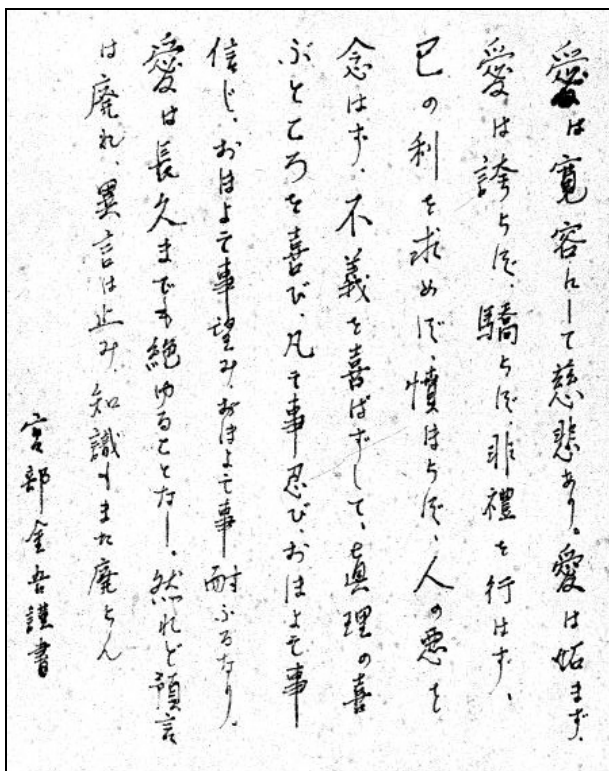 愛は寛容にして慈悲あり。愛は妬まず、
愛は誇らず、驕らず、非禮を行はず、
己の利を求めず、憤ほらず、人の悪を
念はず、不義を喜ばずして、真理の喜
ぶところを喜び、凡そ事忍び、おほよそ事
信じ、おほよそ事望みおほよそ事耐ふるなり。
愛は長久までも絶ゆることなし。然れど預言
は廃れ、異言は止み、知識もまた廃らん
宮部金吾謹書